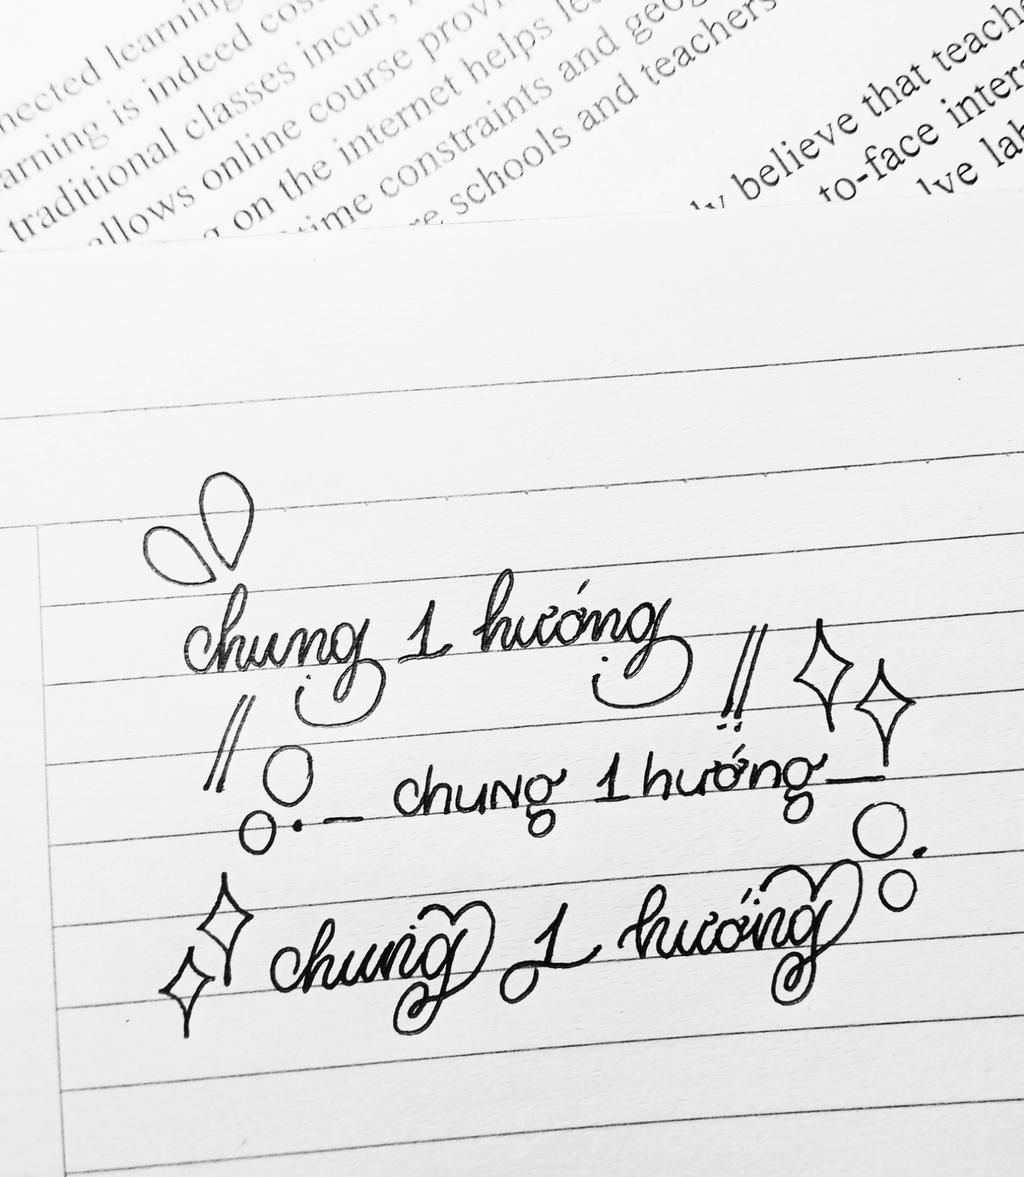 nected learning
arning is indeed cos
traditional classes incur,
allows online course provi
on the internet helps le
time constraints and geog
re schools and teachers
ly believe that teache
to-face inters
lve lab
chung 1 hướng
chung 1 hướng
chung 1 hướng